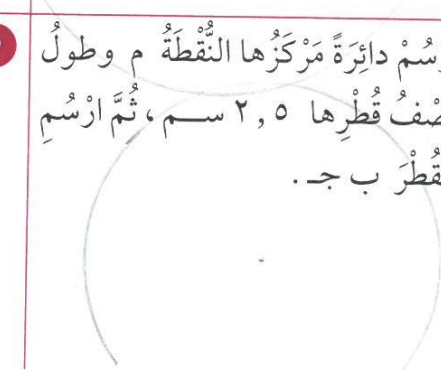 دائِرَةً مَرْكَزُها النُّقْطَةُ م وطولُ
قُطْرِها ٢,٥ ســم، ثُمَّ ارْسُمِ
ب جـ.